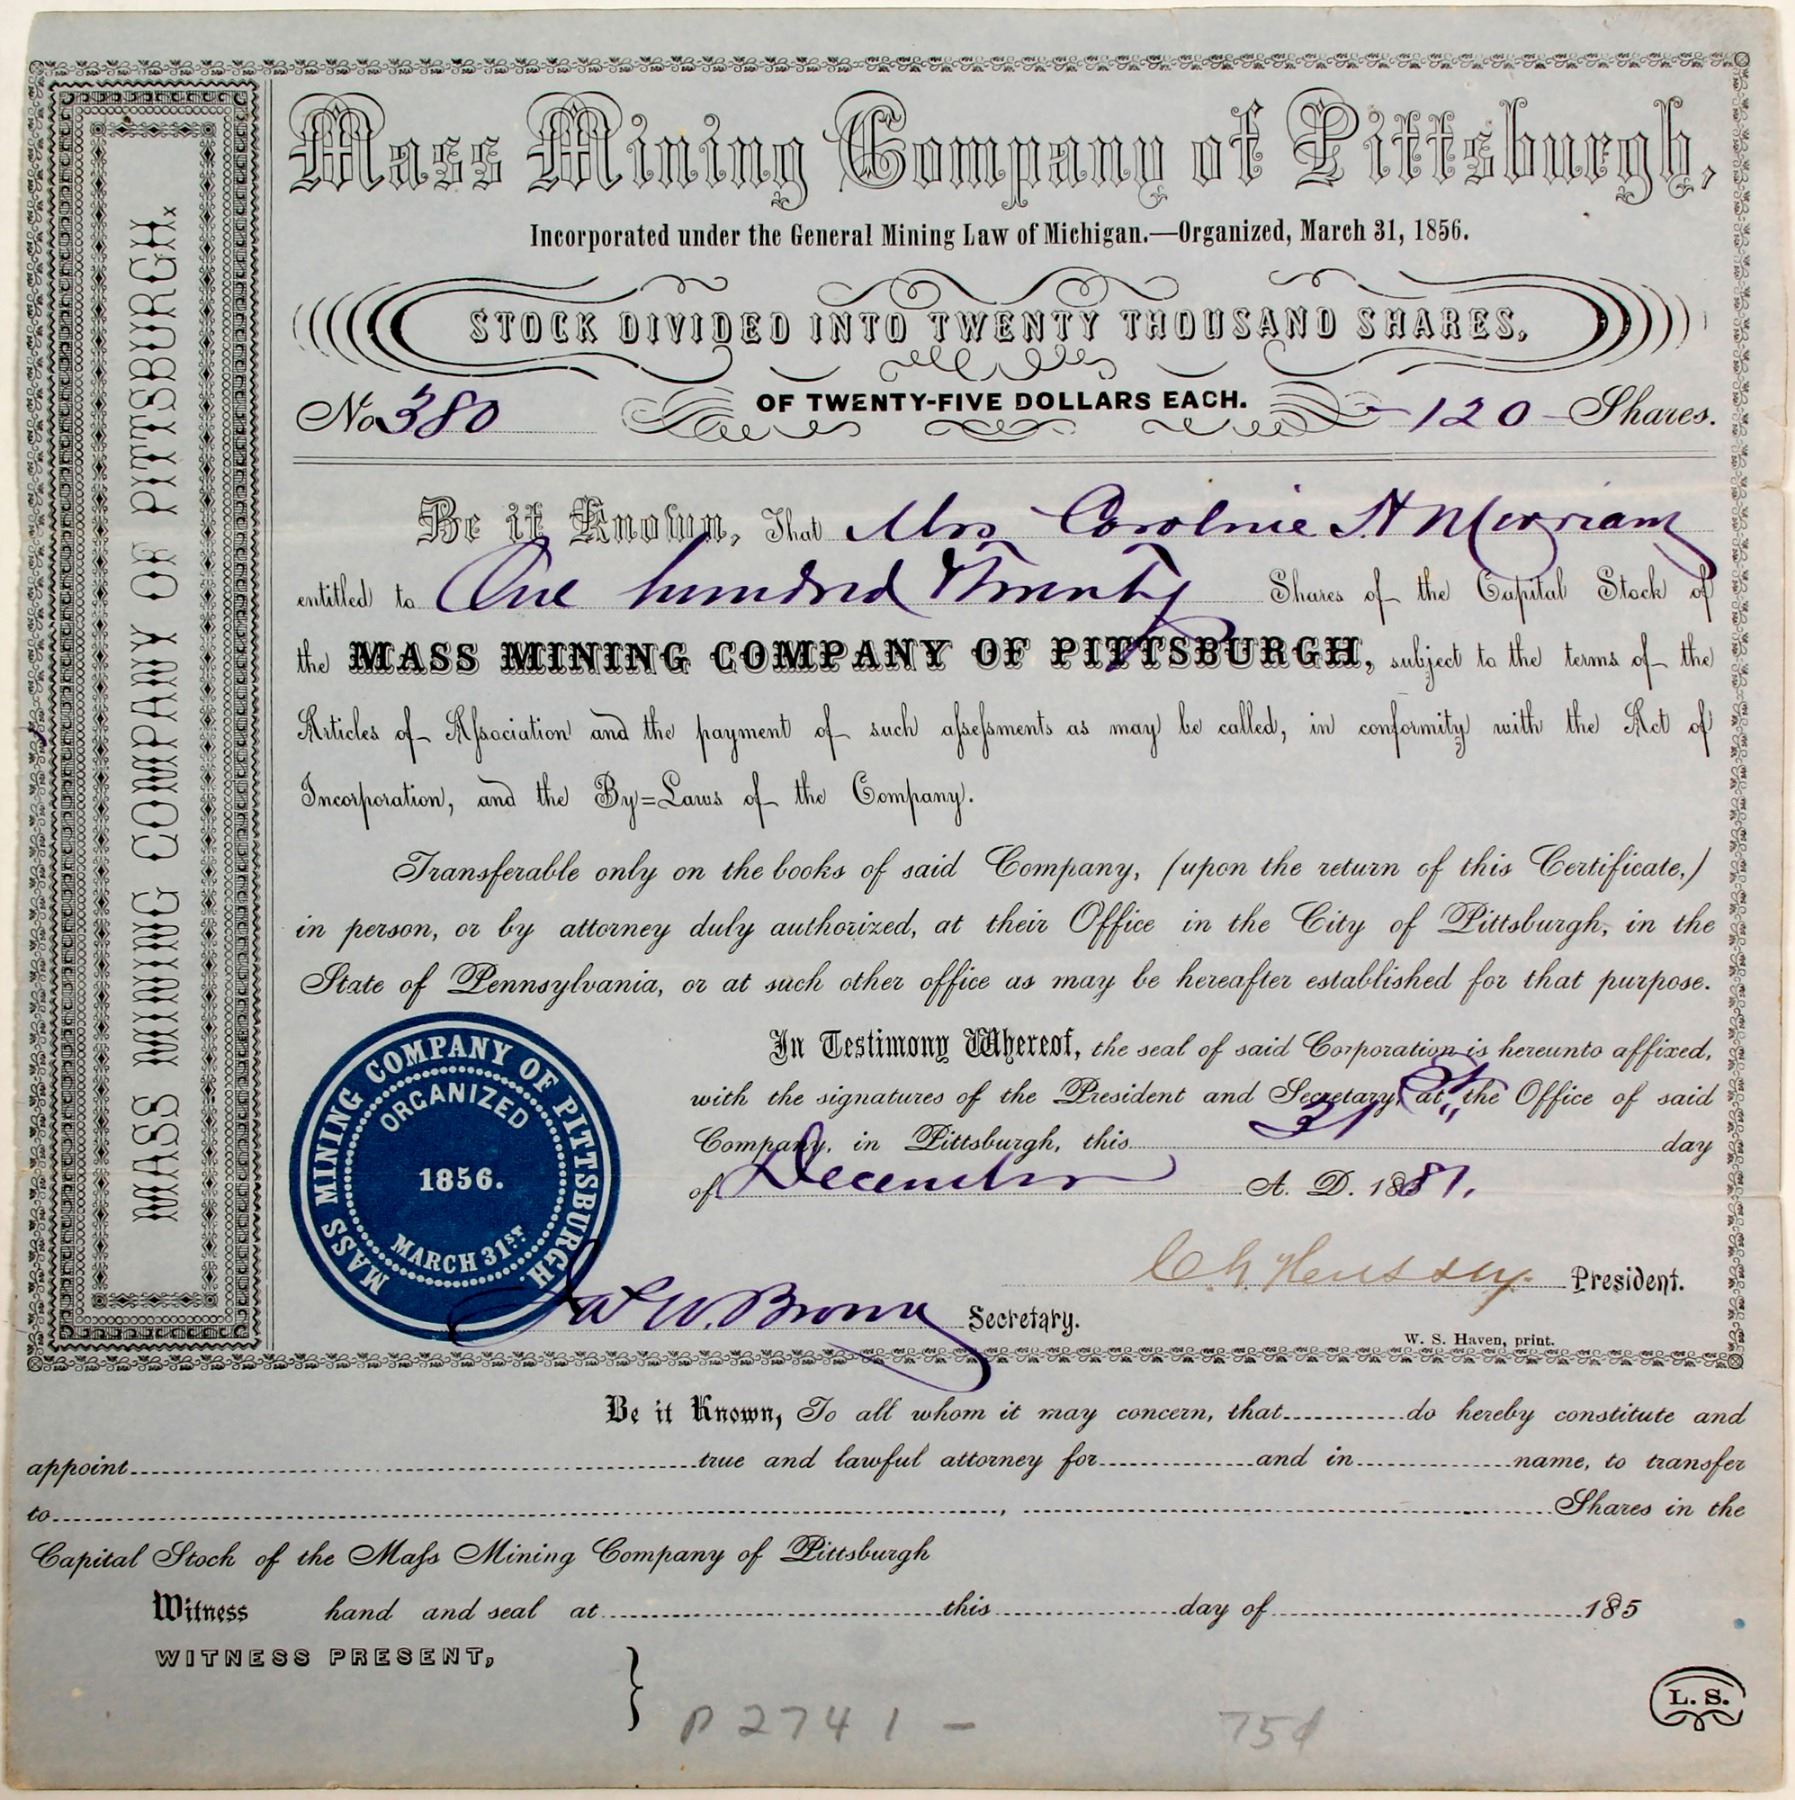 Mass Mining Company of Pittsburgh,
Incorporated under the General Mining Law of Michigan.—Organized, March 31, 1856.
STOCK DIVIDED INTO TWENTY THOUSAND SHARES,
OF TWENTY-FIVE DOLLARS EACH.
No 380
– 120 – Shares.
MASS MINING COMPANY OF PITTSBURGH.
Be it Known, That Mrs Caroline H Merriam
entitled to One hundred & Twenty Shares of the Capital Stock of
the MASS MINING COMPANY OF PITTSBURGH, subject to the terms of the
Articles of Aſsociation and the payment of such aſseſsments as may be called, in conformity with the Act of
Incorporation, and the By=Laws of the Company.
Transferable only on the books of said Company, (upon the return of this Certificate,)
in person, or by attorney duly authorized, at their Office in the City of Pittsburgh, in the
State of Pennsylvania, or at such other office as may be hereafter established for that purpose.
In Testimony Whereof, the seal of said Corporation is hereunto affixed,
with the signatures of the President and Secretary, at the Office of said
Company, in Pittsburgh, this 31st day
of December A. D. 1881.
MASS MINING COMPANY OF PITTSBURGH.
ORGANIZED
1856.
MARCH 31ST
C G Hussey President.
Jas W. Brown Secretary.
W. S. Haven, print.
Be it Known, To all whom it may concern, that do hereby constitute and
appoint true and lawful attorney for and in name, to transfer
to , Shares in the
Capital Stock of the Maſs Mining Company of Pittsburgh
Witness hand and seal at this day of 185
WITNESS PRESENT,
L. S.
P 2741 –
75¢